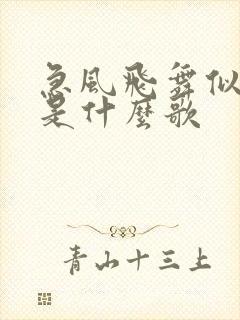 急風飛舞似
是什麼歌
青山十三上